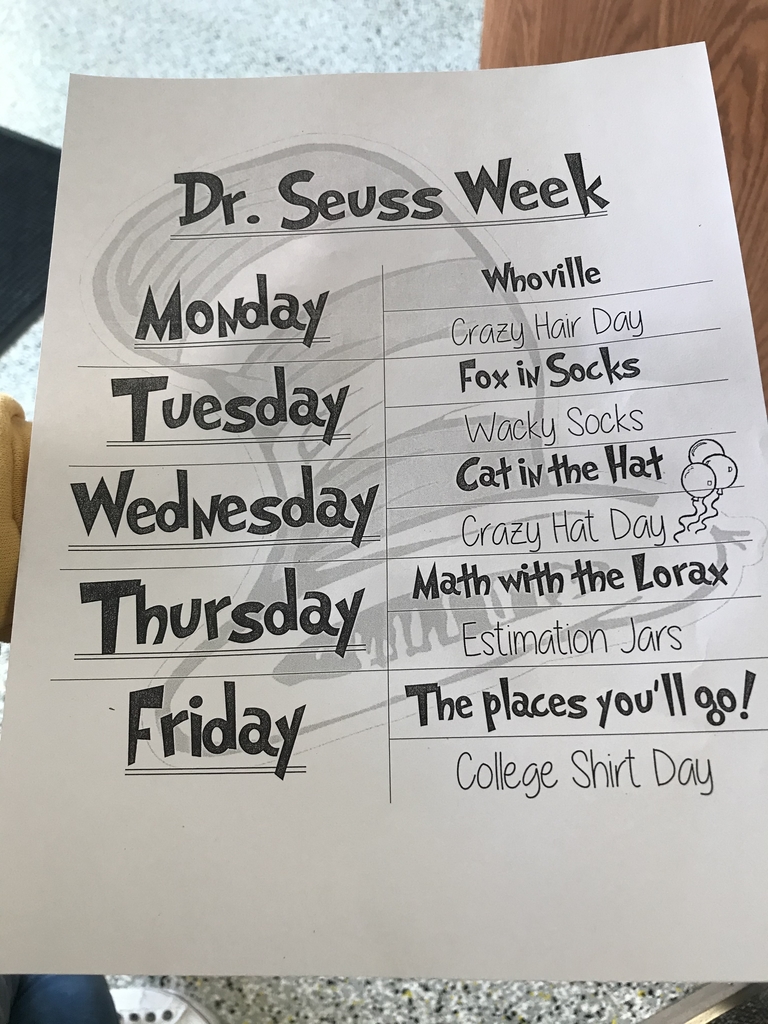 Dr. Seuss Week
Monday
Whoville
Crazy Hair Day
Tuesday
Fox in Socks
Wacky Socks
Wednesday
Cat in the Hat
Crazy Hat Day
Thursday
Math with the Lorax
Estimation Jars
Friday
The places you'll go!
College Shirt Day